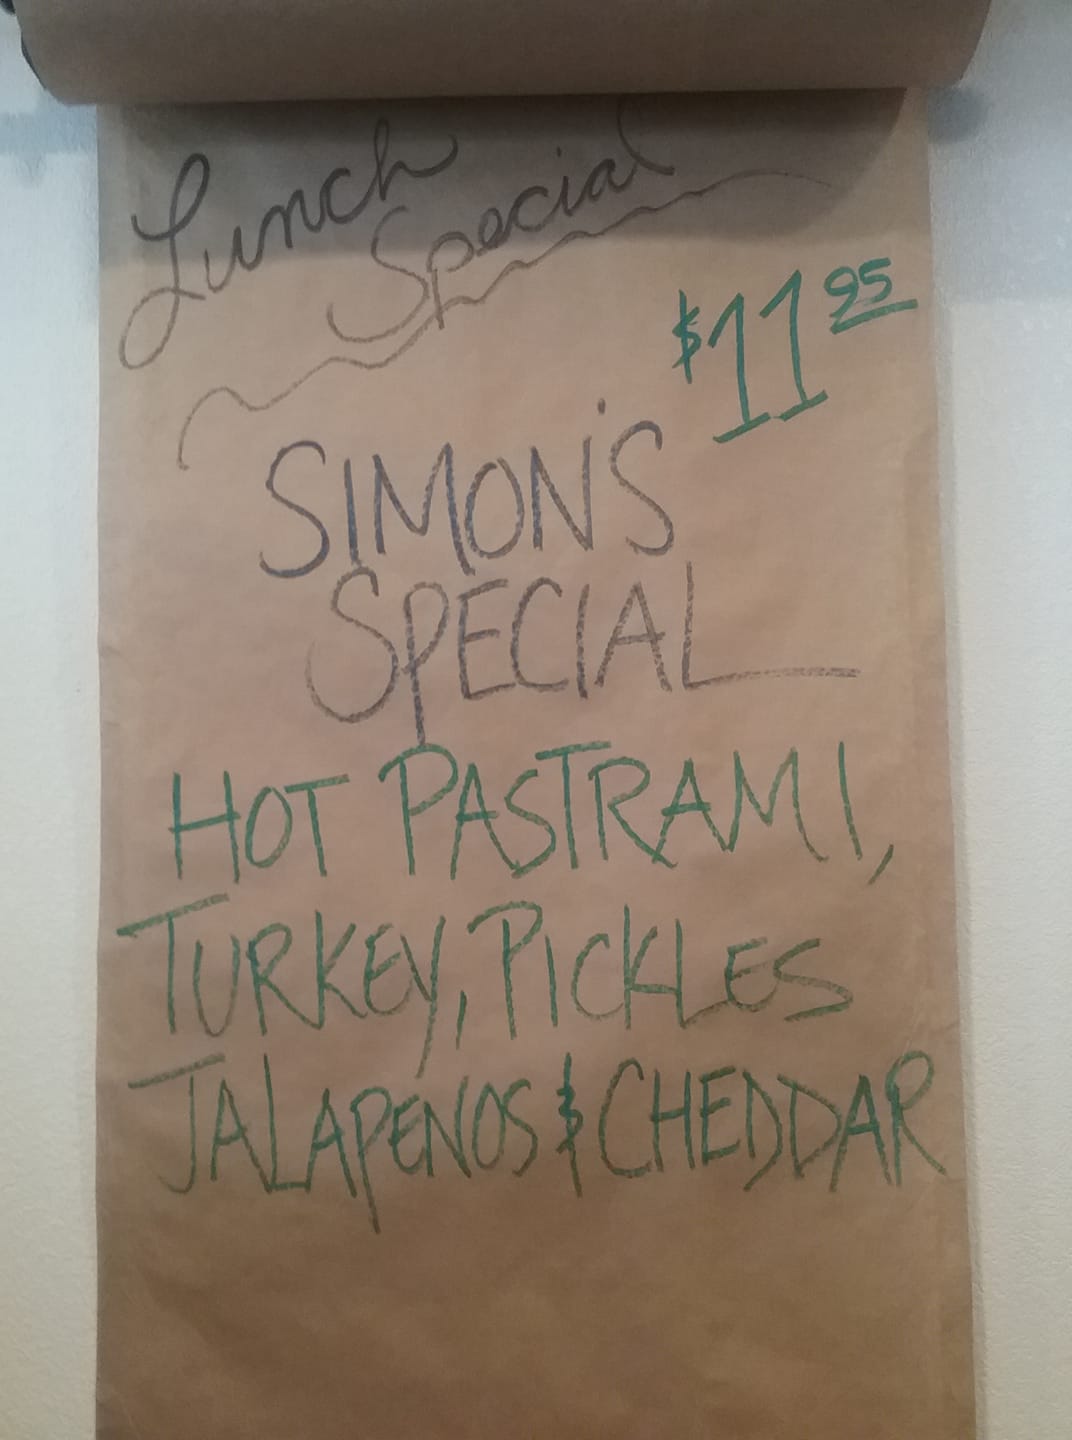 Lunch
Special
$11 95
SIMON'S
SPECIAL
HOT PASTRAMI,
TURKEY, PICKLES
JALAPENOS & CHEDDAR